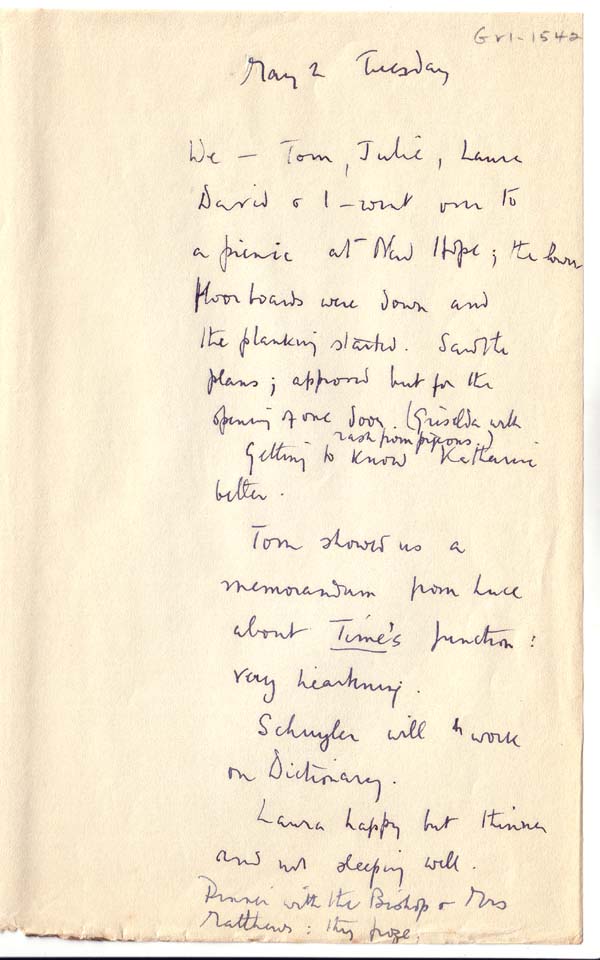 Gr1-1542
May 2 Tuesday
We — Tom, Julie, Laura
David & I — went over to
a picnic at New Hope; the lower
floor boards were down and
the planking started. Saw the
plans; approved but for the
opening of one door. (Griselda with
rash from pigeons.)
Getting to know Katharine
better.
Tom showed us a
memorandum from Luce
about Time's function:
very heartening.
Schuyler will work
on Dictionary.
Laura happy but thinner
and not sleeping well.
Dinner with the Bishop & Mrs
Matthews: they froze.